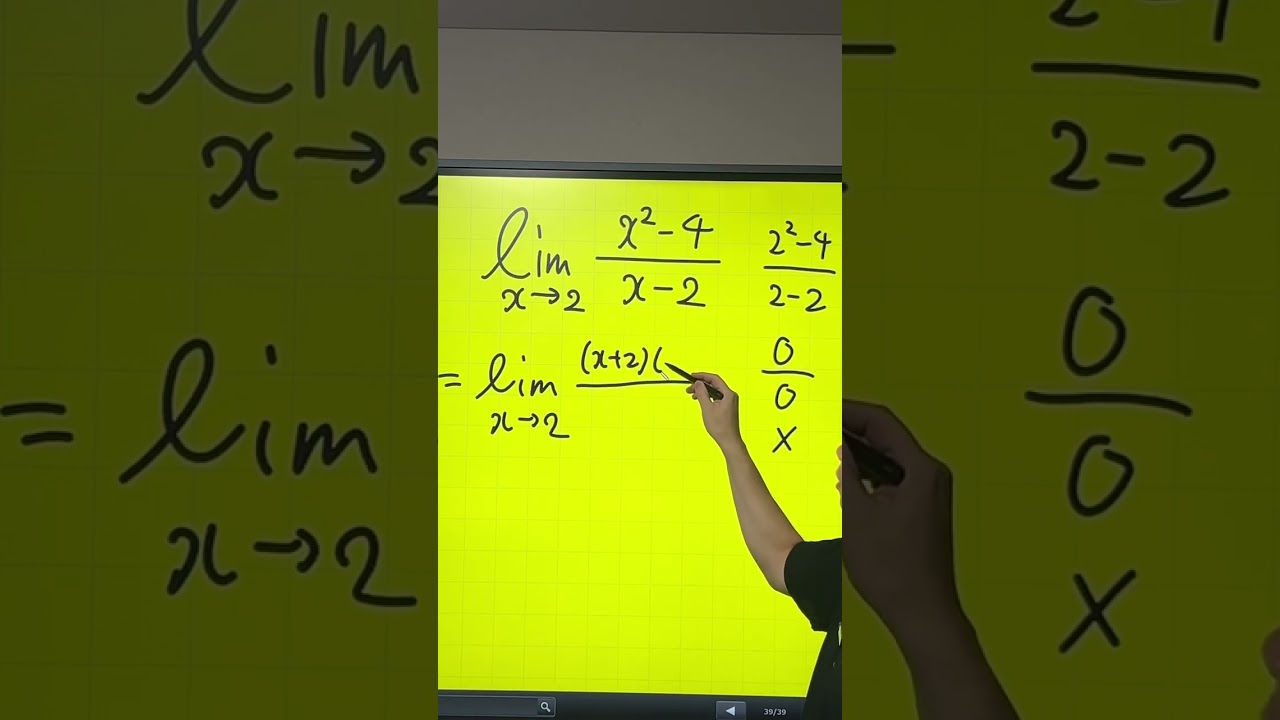 lim x→2 (x²-4)/(x-2)
(2²-4)/(2-2)
= lim x→2 (x+2)(
0/0
x
39/39